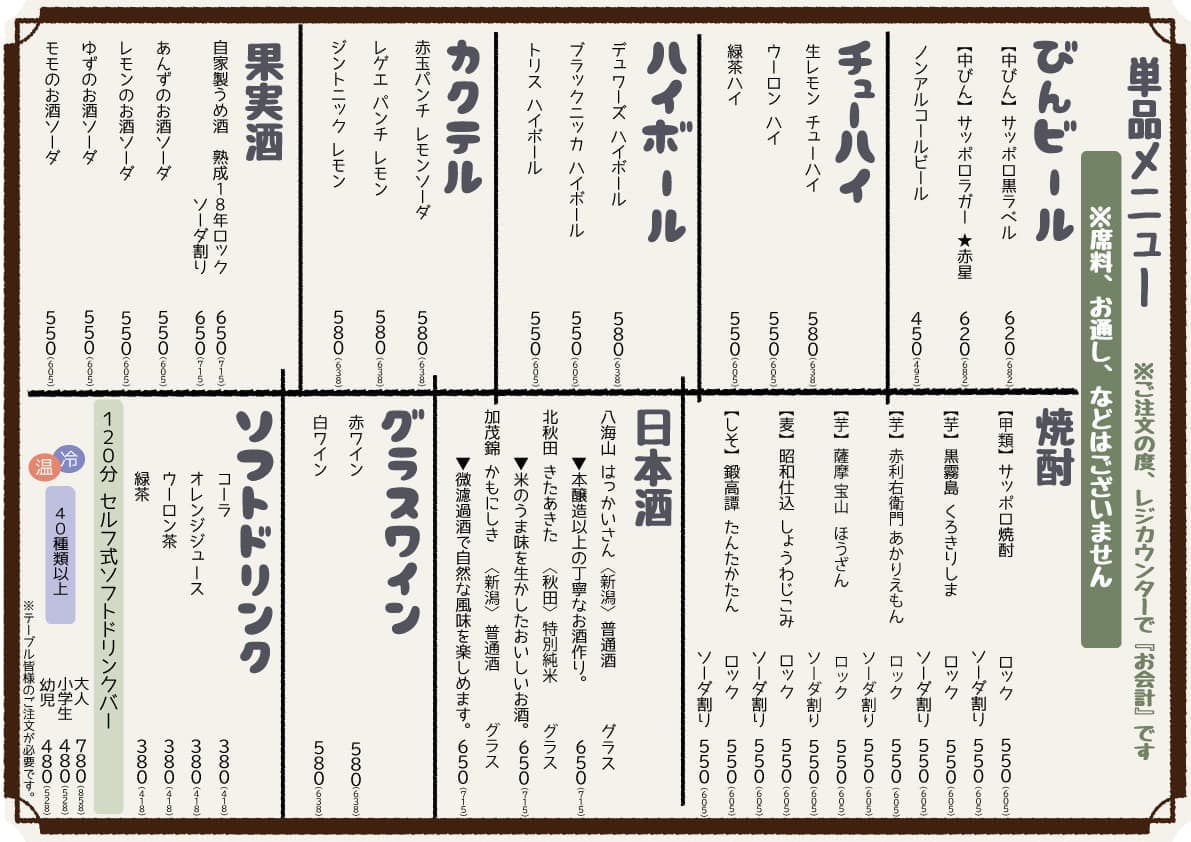 単品メニュー
※ご注文の度、レジカウンターで『お会計』です
※席料、お通し、などはございません
びんビール
【中びん】サッポロ黒ラベル 620(682)
【中びん】サッポロラガー★赤星 620(682)
ノンアルコールビール 450(495)
チューハイ
生レモン チューハイ 580(638)
ウーロン ハイ 550(605)
緑茶ハイ 550(605)
ハイボール
デュワーズ ハイボール 580(638)
ブラックニッカ ハイボール 550(605)
トリス ハイボール 550(605)
カクテル
赤玉パンチ レモンソーダ 580(638)
レゲエ パンチ レモン 580(638)
ジントニック レモン 580(638)
果実酒
自家製うめ酒 熟成18年ロック 650(715)
ソーダ割り 650(715)
あんずのお酒ソーダ 550(605)
レモンのお酒ソーダ 550(605)
ゆずのお酒ソーダ 550(605)
モモのお酒ソーダ 550(605)
焼酎
【甲類】サッポロ焼酎 ロック 550(605)
ソーダ割り 550(605)
【芋】黒霧島 くろきりしま ロック 550(605)
ソーダ割り 550(605)
【芋】赤利右衛門 あかりえもん ロック 550(605)
ソーダ割り 550(605)
【芋】薩摩 宝山 ほうざん ロック 550(605)
ソーダ割り 550(605)
【麦】昭和仕込 しょうわじこみ ロック 550(605)
ソーダ割り 550(605)
【しそ】鍛高譚 たんたかたん ロック 550(605)
ソーダ割り 550(605)
日本酒
八海山 はっかいさん〈新潟〉普通酒 グラス
▼本醸造以上の丁寧なお酒作り。 650(715)
北秋田 きたあきた 〈秋田〉特別純米 グラス
▼米のうま味を生かしたおいしいお酒。 650(715)
加茂錦 かもにしき 〈新潟〉普通酒 グラス
▼微濾過酒で自然な風味を楽しめます。 650(715)
グラスワイン
赤ワイン 580(638)
白ワイン 580(638)
ソフトドリンク
コーラ 380(418)
オレンジジュース 380(418)
ウーロン茶 380(418)
緑茶 380(418)
120分 セルフ式ソフトドリンクバー
冷
温
40種類以上
大人 780(858)
小学生 480(528)
幼児 480(528)
※テーブル皆様のご注文が必要です。